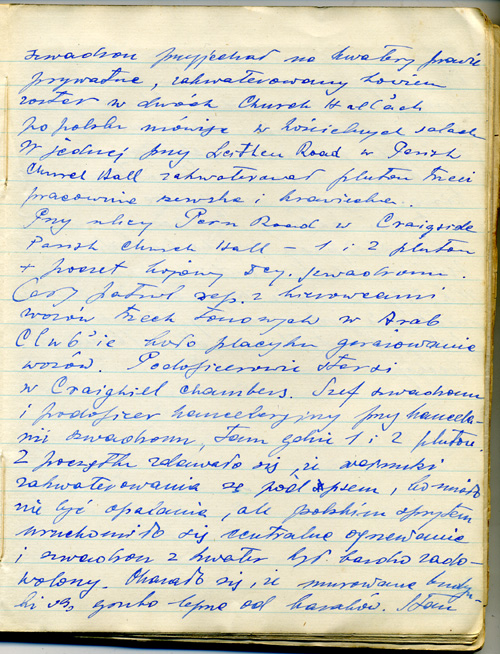 szwadron przyjechał na kwatery prawie
prywatne, zakwaterowany bowiem
został w dwóch Church Hall'ach
po polsku mówiąc w kościelnych salach
W jednej przy Leithen Road w Parish
Church Hall zakwaterował pluton trzeci
pracownia szewska i krawiecka.
Przy ulicy Road w Craigside
Parish Church Hall – 1 i 2 pluton
+ poczet bojowy dcy. szwadronu.
Cały patrol rep. z kierowcami
wozów trzech tonowych w Arab
Club'ie koło placyku garażowania
wozów. Podoficerowie starsi
w Craighiel Chambers. Szef szwadronu
i podoficer kancelaryjny przy kancela-
rii szwadronu, tam gdzie 1 i 2 pluton.
Z początku zdawało się, że warunki
zakwaterowania są pod psem, bo miało
nie być opalania, ale polskim sprytem
uruchomiło się centralne ogrzewanie
i szwadron z kwater był bardzo zado-
wolony. Okazało się, że murowane budyn-
ki są lepsze od baraków. Stan